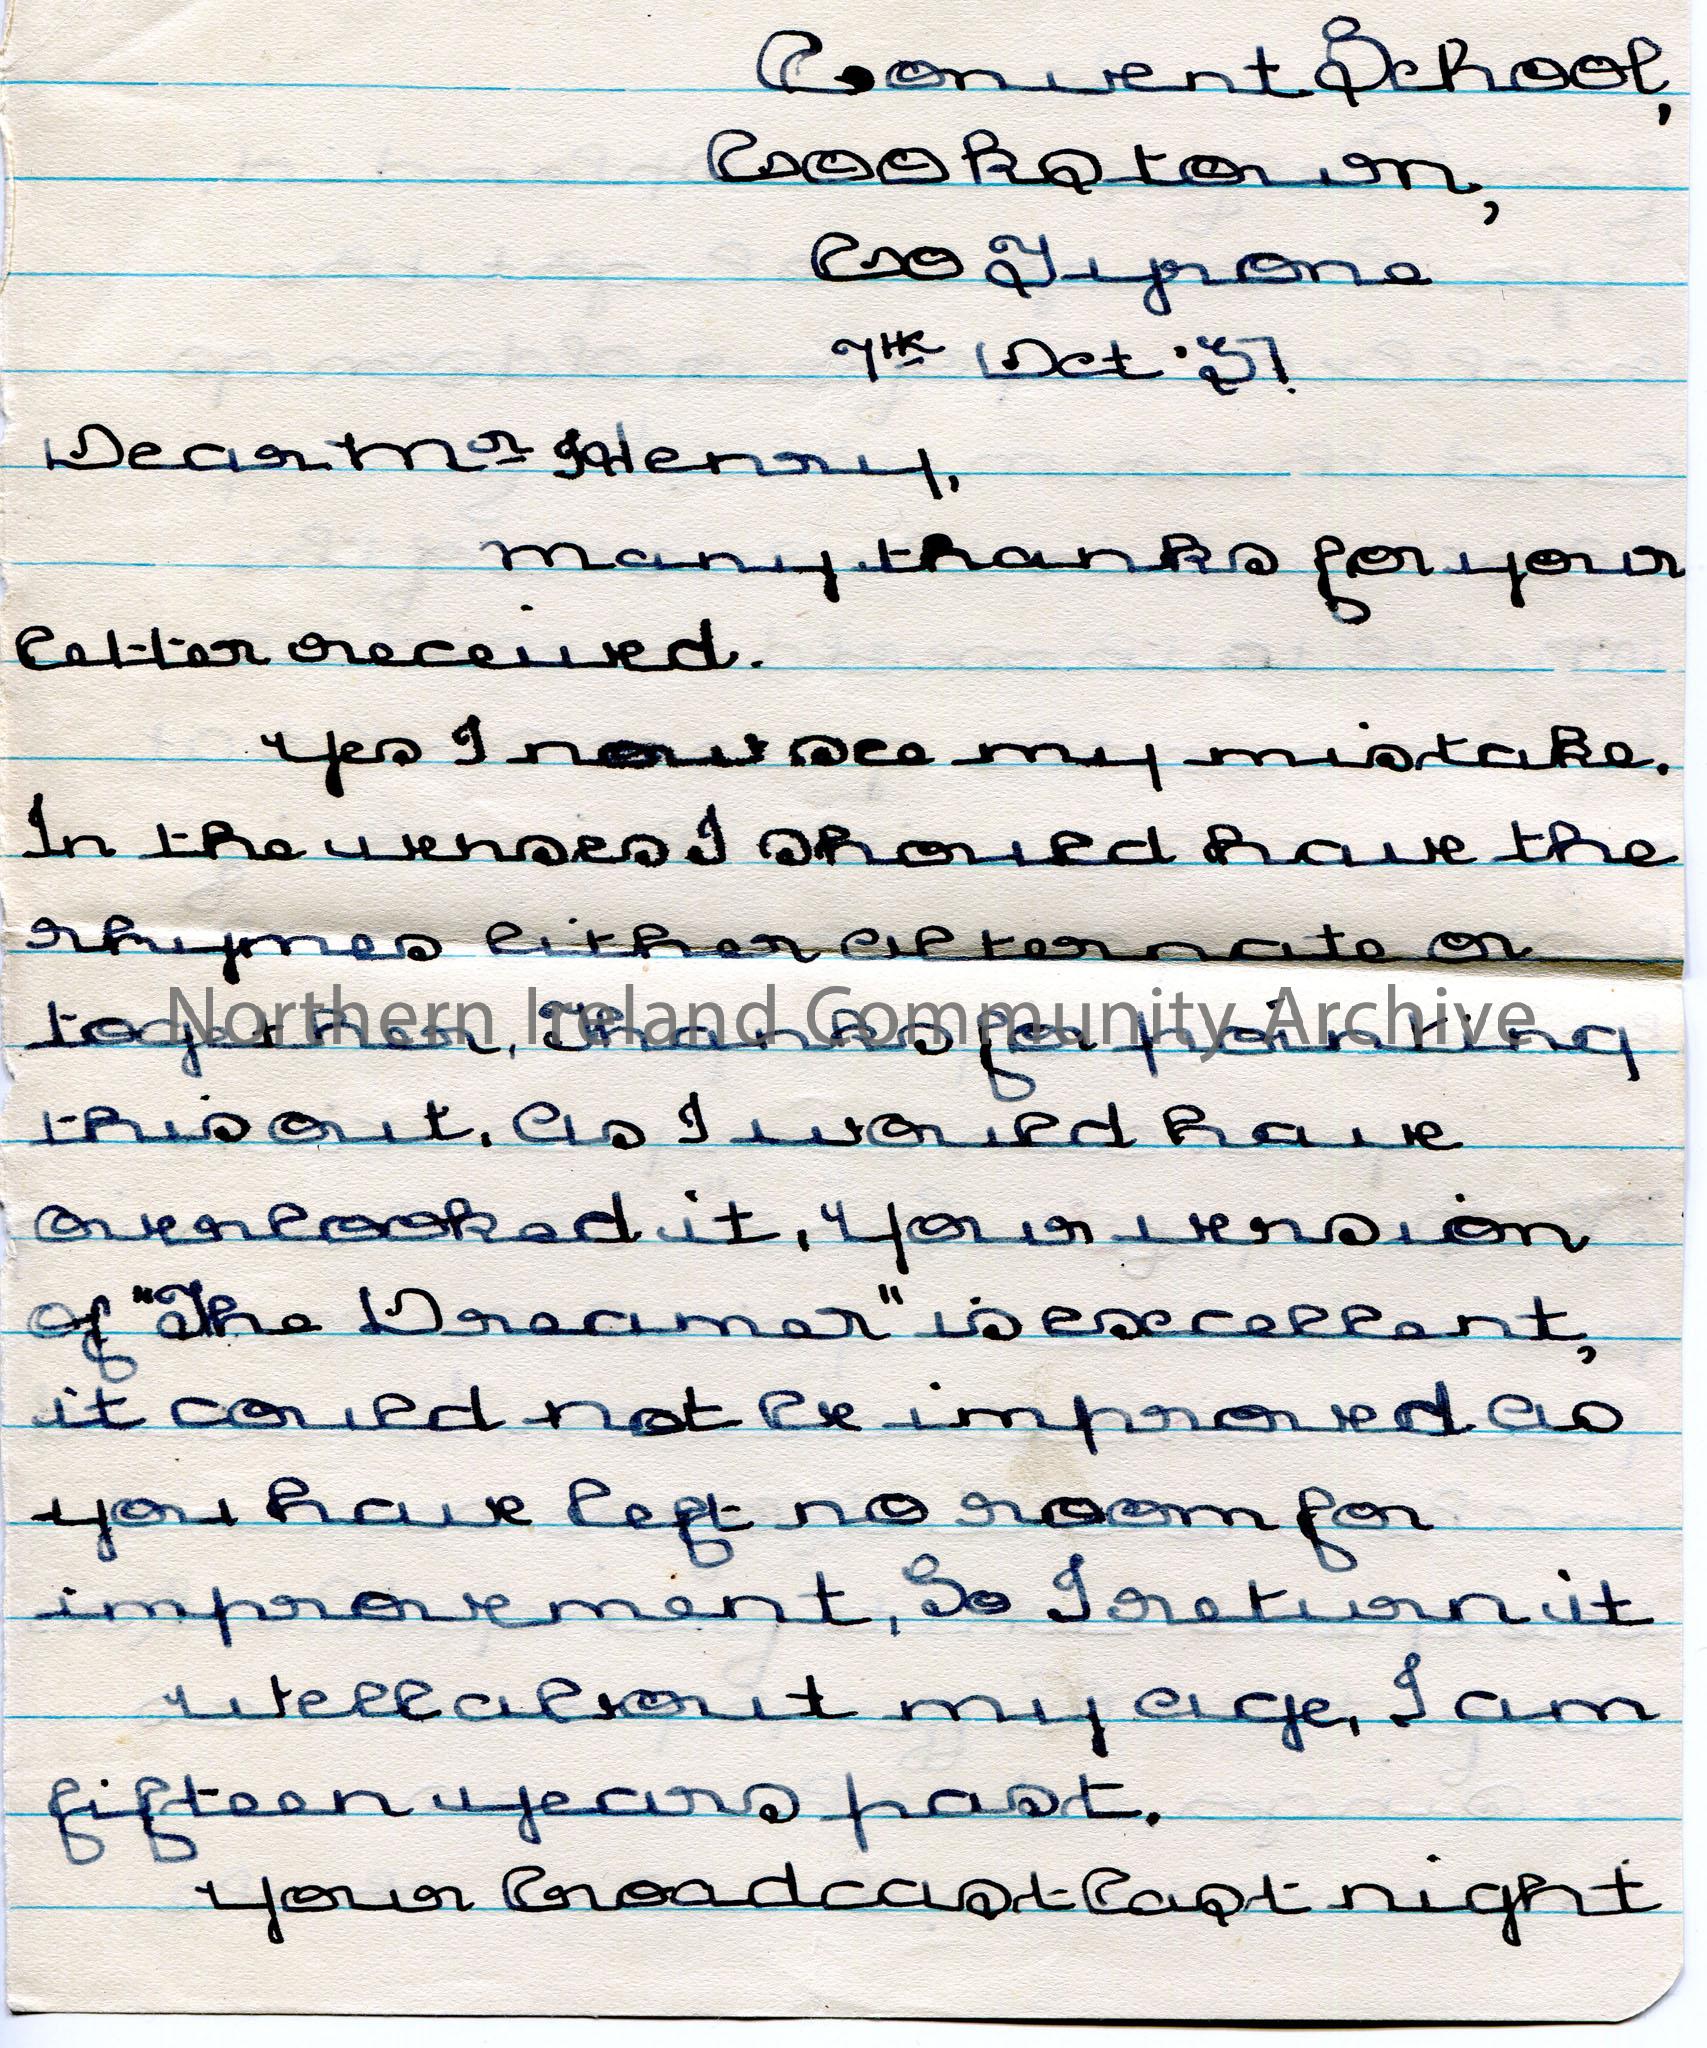 Convent School,
Cookstown,
Co Tyrone
7th Oct '51
Dear Mr Henry,
many thanks for your
letter received.
Yes I now see my mistake.
In the verses I should have the
rhymes either alternate or
together, Thanks for pointing
this out. as I would have
overlooked it, Your version
of "The Dreamer" is excellent,
it could not be improved as
you have left no room for
improvement, So I return it
Well about my age, I am
fifteen years past.
Your broadcast last night
Northern Ireland Community Archive